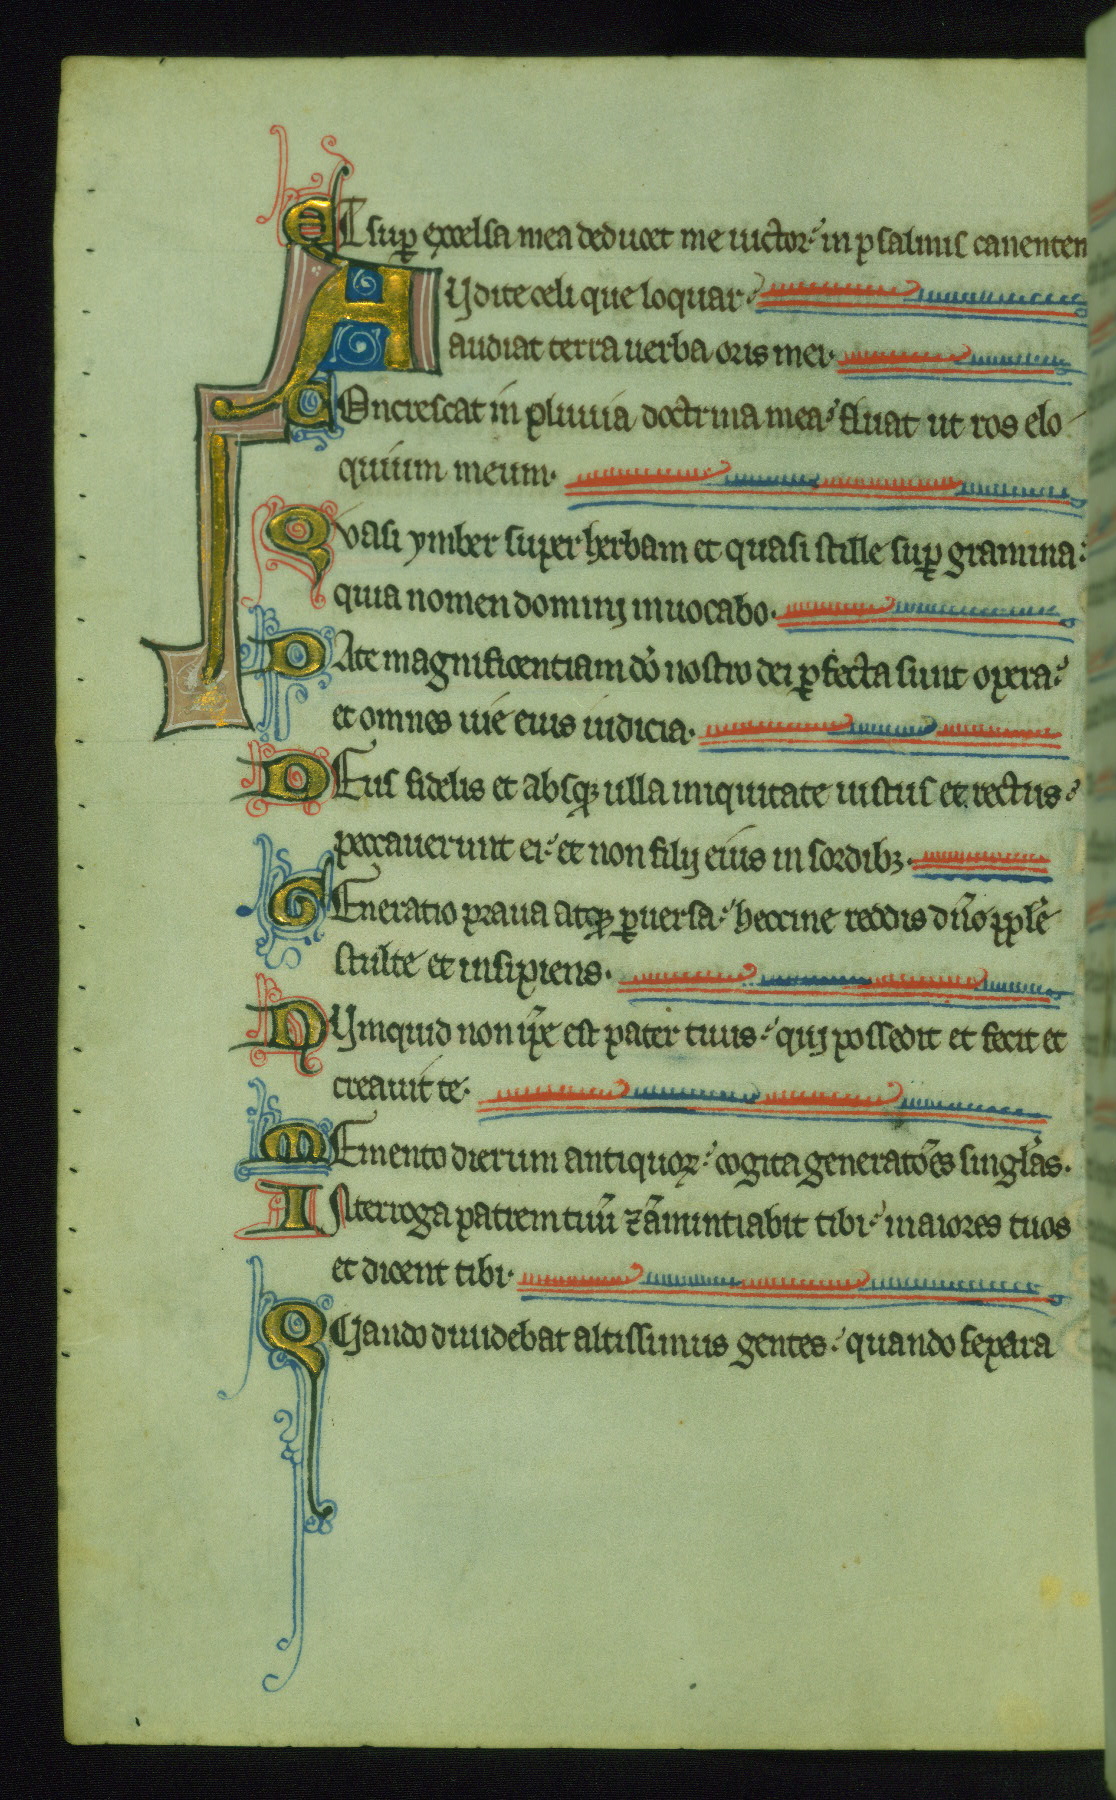 ET sup excelsa mea deducet me uictor: in psalmis canentem
AUdite celi que loquar:
audiat terra uerba oris mei.
COncrescat in pluuia doctrina mea: fluat ut ros elo
quium meum.
QVasi ymber super herbam et quasi stille sup gramina:
quia nomen domini inuocabo.
DAte magnificentiam dō nostro dei pfecta sunt opera:
et omnes uie eius iudicia.
DEus fidelis et absq; ulla iniquitate iustus et rectus:
peccauerunt ei: et non filij eius in sordibꝫ.
GEneratio praua atq; puersa: heccine reddis dn̄o pple
stulte et insipiens.
NUmquid non ip̄e est pater tuus: qui possedit et fecit et
creauit te.
MEmento dierum antiquoꝝ: cogita generatōes singl̄as.
INterroga patrem tuū ⁊ ānuntiabit tibi: maiores tuos
et dicent tibi.
QUando diuidebat altissimus gentes: quando separa